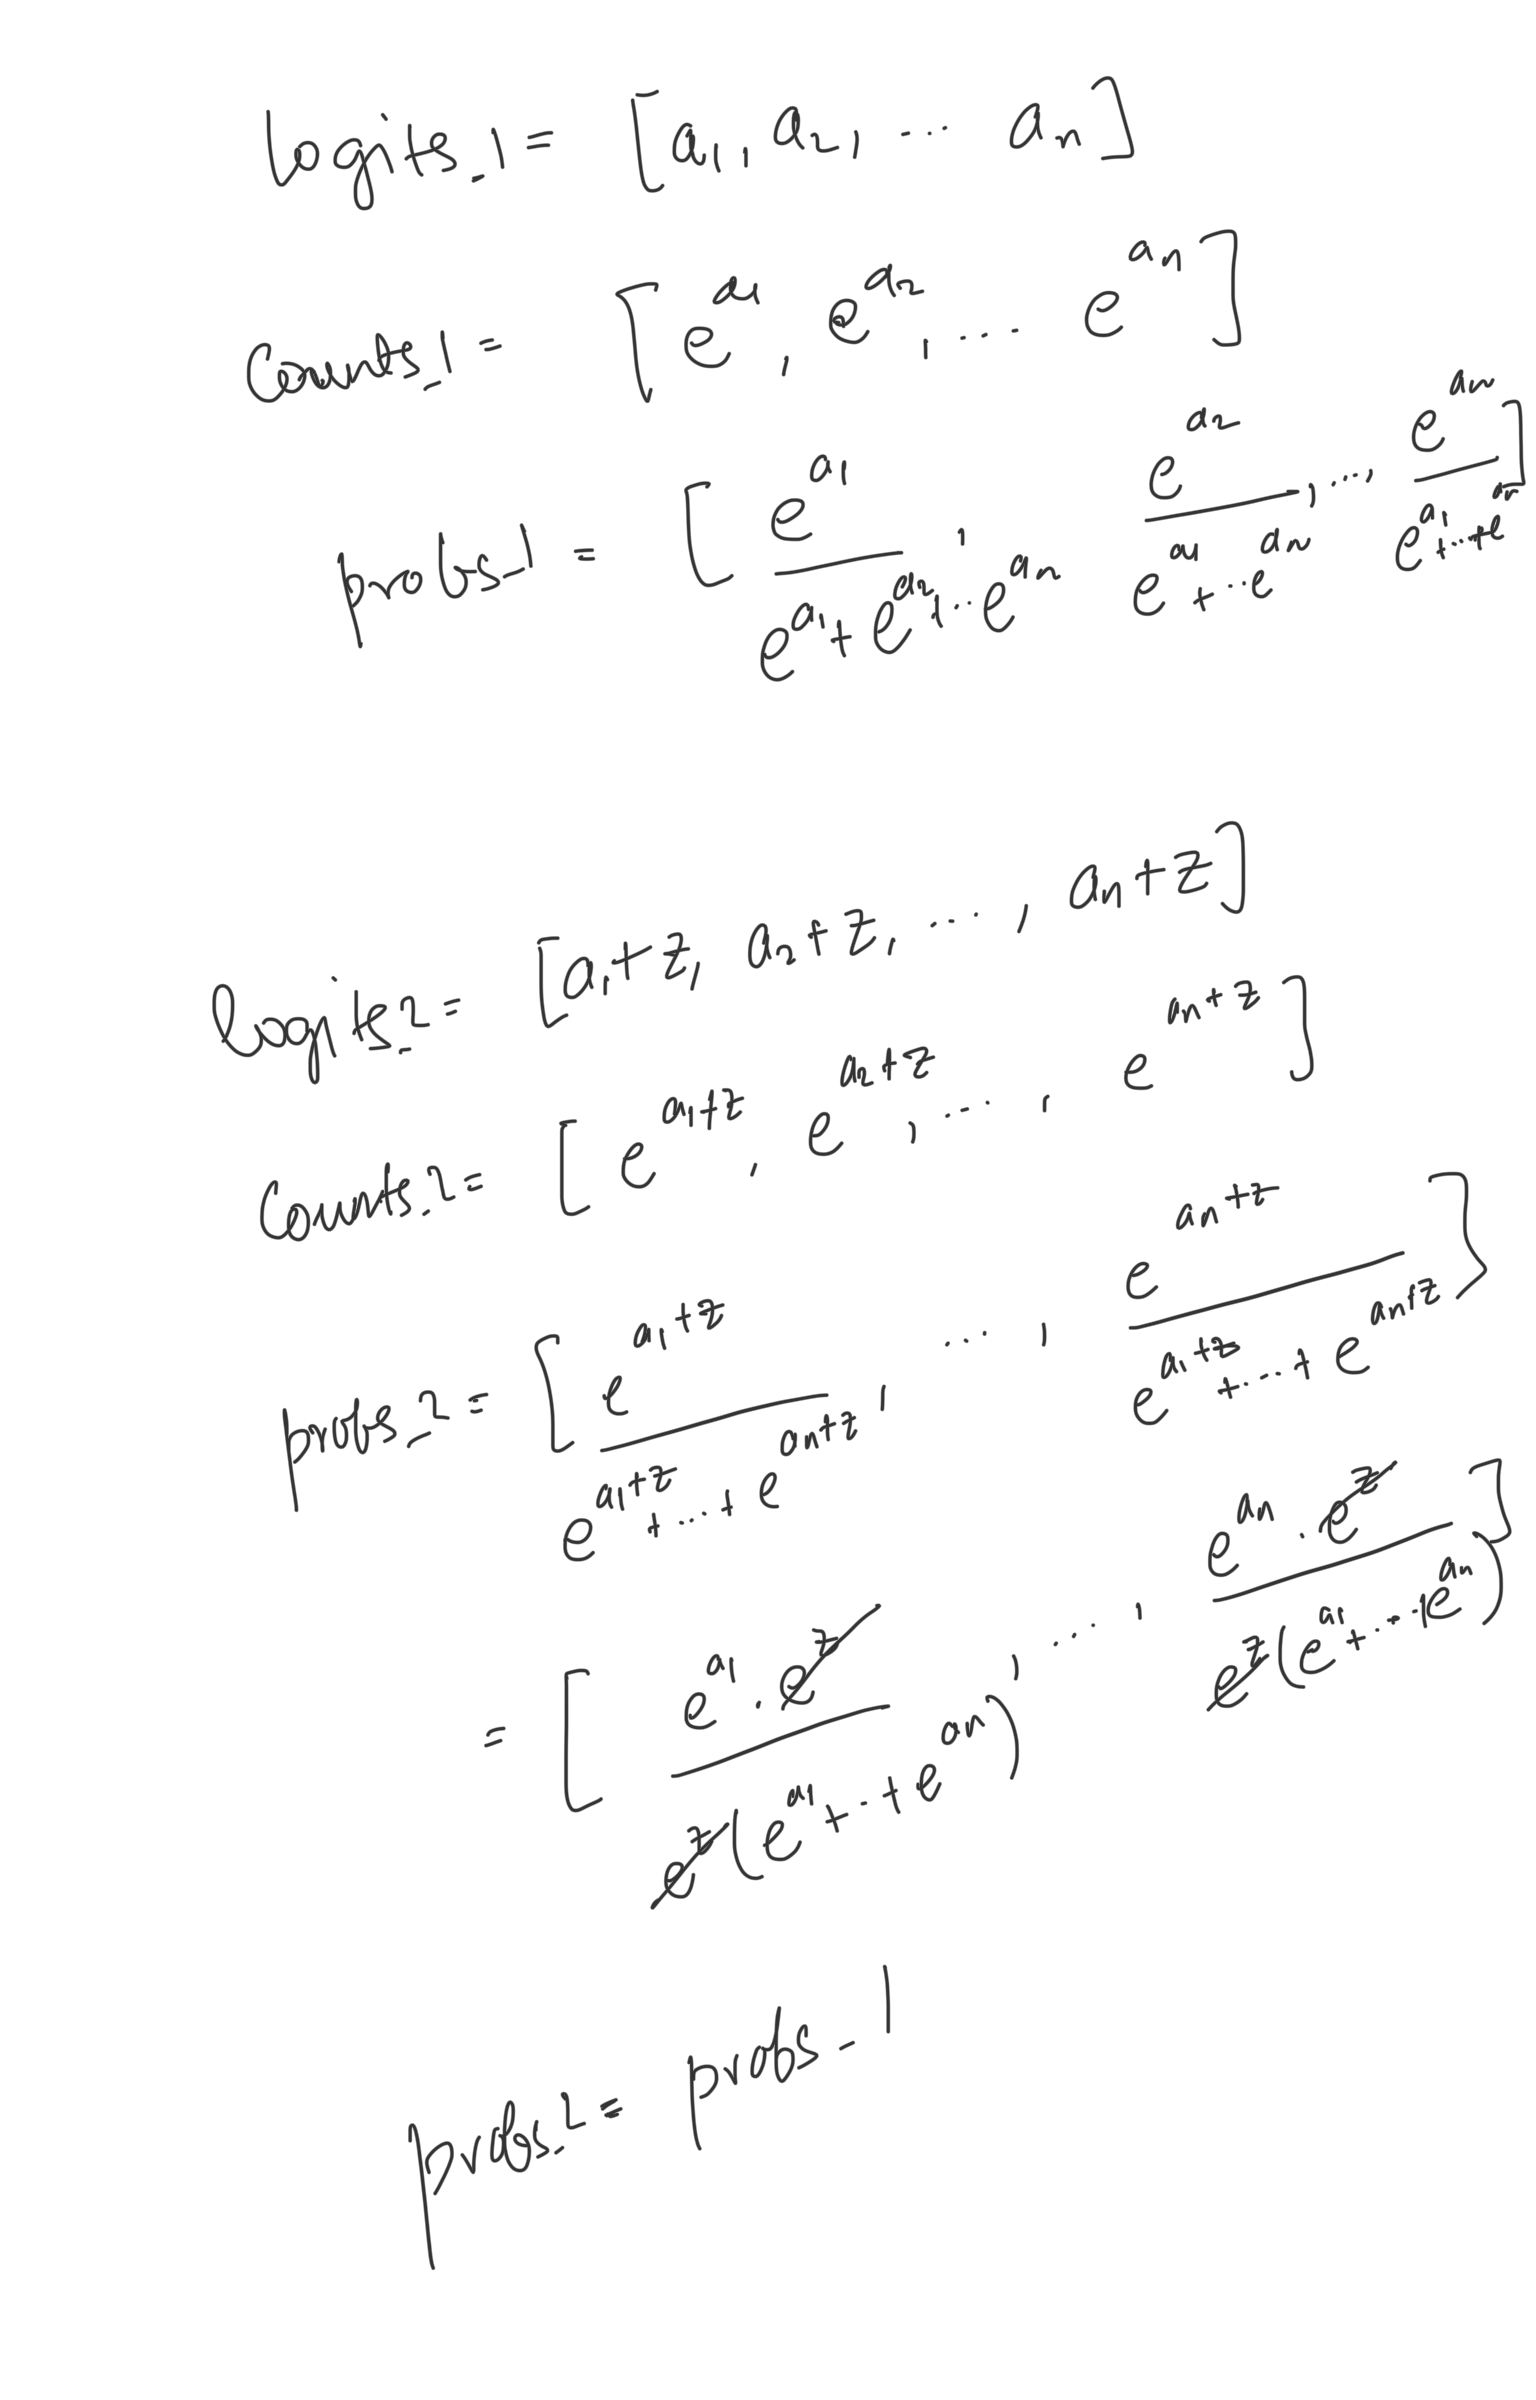 logits_1 = [a₁, a₂, ... aₙ]
Counts_1 = [e^a₁, e^a₂, .... e^aₙ]
probs_1 = [e^a₁ / (e^a₁ + e^a₂ + ... e^aₙ), e^a₂ / (e^a₁ + ... e^aₙ), ..., e^aₙ / (e^a₁ + ... + e^aₙ)]
logits_2 = [a₁+z, a₂+z, ..., aₙ+z]
Counts_2 = [e^(a₁+z), e^(a₂+z), ..., e^(aₙ+z)]
probs_2 = [e^(a₁+z) / (e^(a₁+z) + ... + e^(aₙ+z)), ..., e^(aₙ+z) / (e^(a₁+z) + ... + e^(aₙ+z))]
= [e^a₁ . e^z / e^z (e^a₁ + .. + e^aₙ), ...., e^aₙ . e^z / e^z (e^a₁ + ... + e^aₙ)]
probs_2 = probs_1